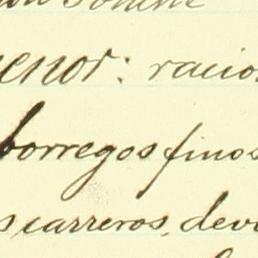 enor: racio
borregos finos
s carreros, dev